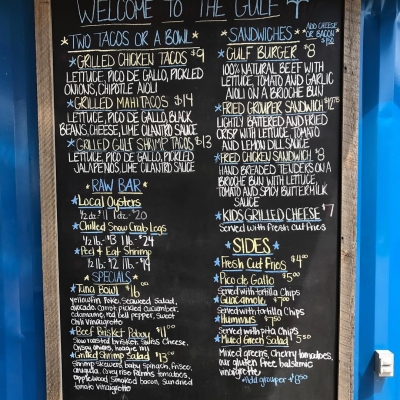 WELCOME TO THE GULF
TWO TACOS OR A BOWL
GRILLED CHICKEN TACOS $9
LETTUCE, PICO DE GALLO, PICKLED
ONIONS, CHIPOTLE AIOLI
GRILLED MAHI TACOS $14
LETTUCE, PICO DE GALLO, BLACK
BEANS, CHEESE, LIME CILANTRO SAUCE
GRILLED GULF SHRIMP TACOS $13
LETTUCE, PICO DE GALLO, PICKLED
JALAPENOS, LIME CILANTRO SAUCE
RAW BAR
Local Oysters
1/2 dz. $11 1 dz. $20
Chilled Snow Crab Legs
1/2 lb. $13 1 lb. $24
Peel & Eat Shrimp
1/2 lb. $12 1 lb. $19
SPECIALS
Tuna Bowl $16.00
yellowfin poke, seaweed salad,
avocado, carrot, pickled cucumber,
edamame, red bell pepper, sweet
chili vinaigrette
Beef Brisket Poboy $11.00
Slow roasted brisket, Swiss Cheese,
Crispy onions, hoagie
Grilled Shrimp Salad $13.00
Shrimp skewers, baby spinach, frisee,
arugula, oven tomatoes,
applewood smoked bacon, sundried
tomato vinaigrette
SANDWICHES
ADD CHEESE
OR BACON
GULF BURGER $8
100% NATURAL BEEF WITH
LETTUCE, TOMATO AND GARLIC
AIOLI ON A BRIOCHE BUN
FRIED GROUPER SANDWICH $12.75
LIGHTLY BATTERED AND FRIED
CRISP WITH LETTUCE, TOMATO
AND LEMON DILL SAUCE
FRIED CHICKEN SANDWICH $8
HAND BREADED TENDERS ON A
BRIOCHE BUN WITH LETTUCE,
TOMATO AND SPICY BUTTERMILK
SAUCE
KIDS GRILLED CHEESE $7
SERVED WITH FRESH CUT FRIES
SIDES
Fresh Cut Fries $4.00
Pico de Gallo $5.00
Served with tortilla Chips
Guacamole $7.00
Served with tortilla Chips
Hummus $7.00
Served with pita Chips
Mixed Green Salad $5.00
Mixed greens, cherry tomatoes,
our gluten free balsamic
vinaigrette
Add grouper $8.50